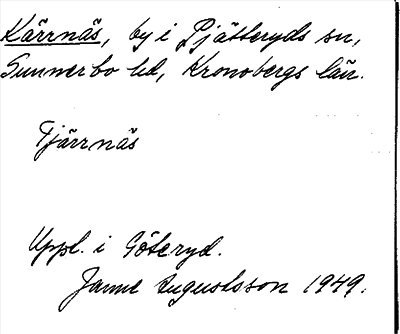 Kärrnäs, by i Pjätteryds sn,
Sunnerbo hd, Kronobergs län.
Tjärrnäs
Uppl. i Göteryd.
Janne Augustsson 1949.